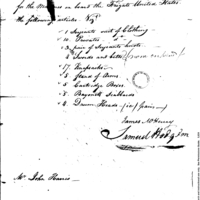 for the Marines on board the Frigate United States
the following articles. Viz
1 Serjeants suit of Clothing
10 Privates do
3 pair of Serjeants
2 Swords and belts
17 Knapsacks
8 Stand of Arms
8 Cartridge Boxes
8 Bayonet Scabbards
4 Drum Heads
James McHenry
Samuel Hodgdon
Mr John Harris